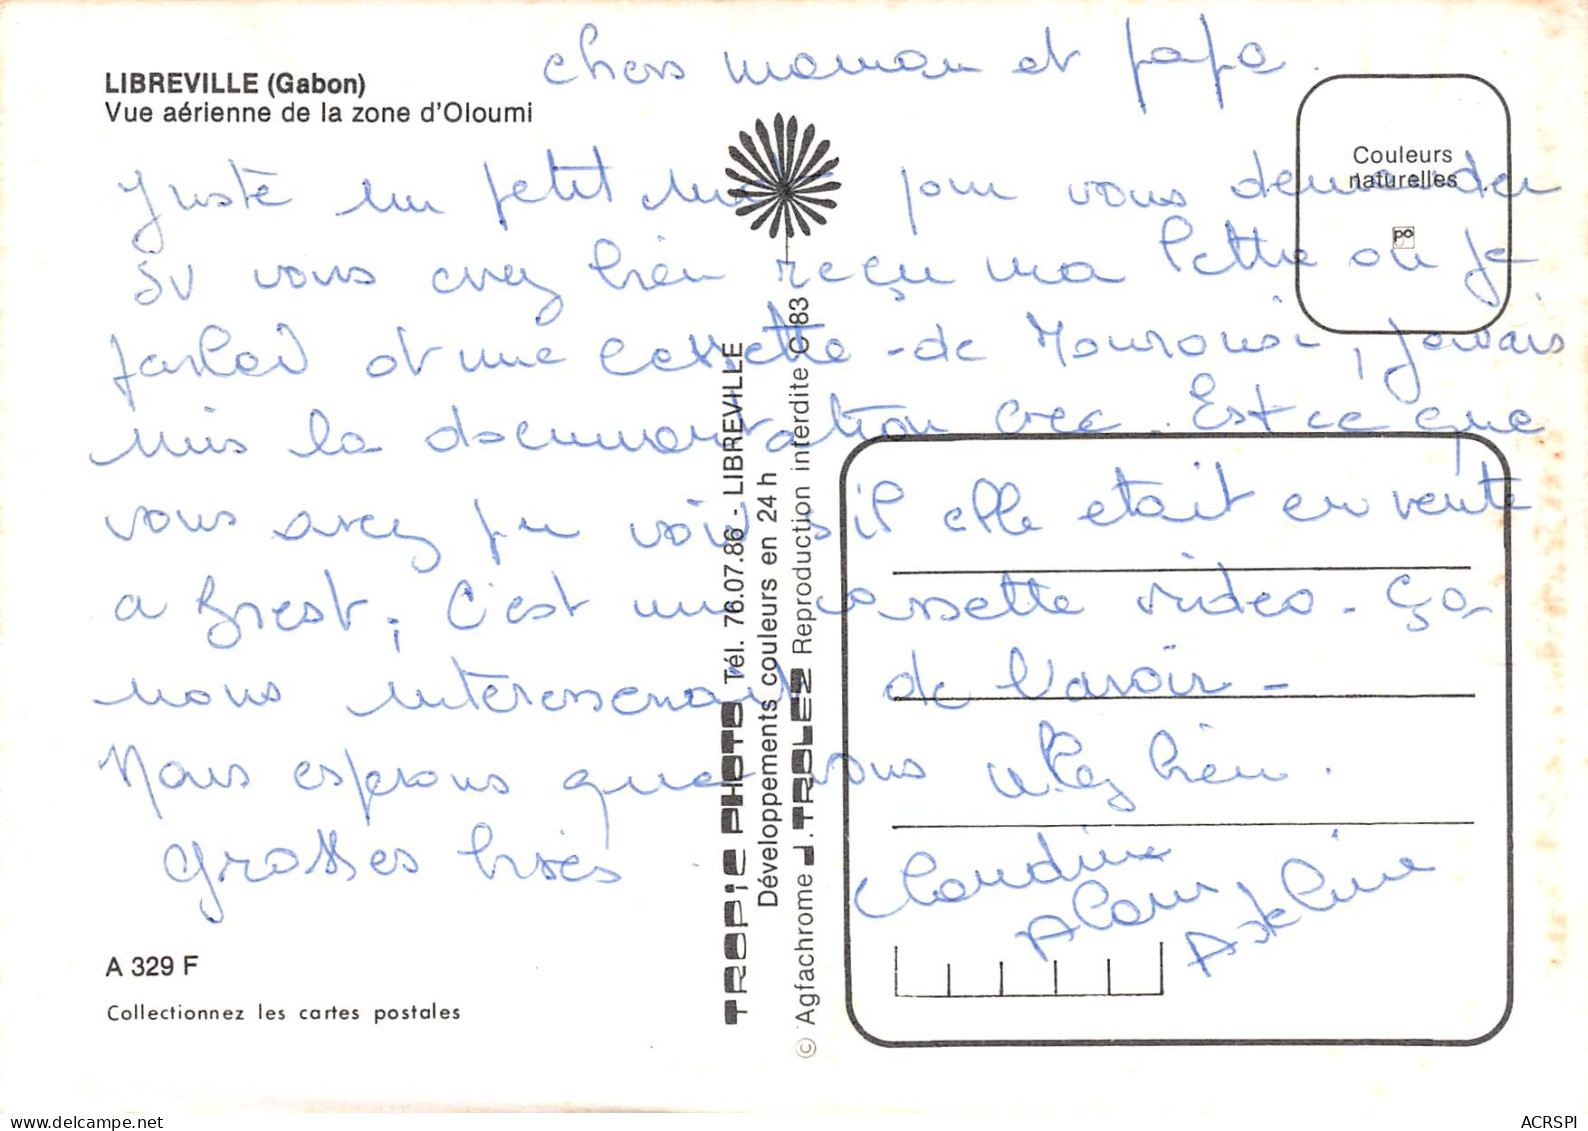 LIBREVILLE (Gabon)
Vue aérienne de la zone d'Oloumi
chers maman et papa.
Juste un petit mot pour vous demander
si vous avez bien reçu ma lettre ou je
parlai d'une cassette - de Mourousi, j'avais
mis la documentation avec. Est ce que
vous avez pu voir s'il elle etait en vente
a Brest; C'est une cassette video - ça
nous interesserait de l'avoir -
Nous esperons que vous allez bien.
grosses bises
Claudine
Alain,
Couleurs
naturelles
po
TROPIC PHOTO Tél. 76.07.86 - LIBREVILLE
Développements couleurs en 24 h
© Agfachrome J. TROLEZ Reproduction interdite C 83
A 329 F
Collectionnez les cartes postales
ACRSPI